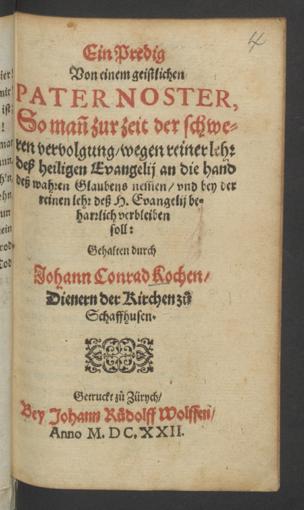 4
Ein Predig
Von einem geistlichen
PATER NOSTER,
So mañ zur zeit der schwe-
ren vervolgung/ wegen reiner lehr
deß heiligen Evangelij an die hand
deß wahren Glaubens nemen/ vnd bey der
reinen lehr deß H. Evangelij be-
harrlich verbleiben
soll:
Gehalten durch
Johann Conrad Kochen/
Dienern der Kirchen zů
Schaffhusen.
Getruckt zů Zürych/
Bey Johann Růdolff Wolffen/
Anno M. DC. XXII.